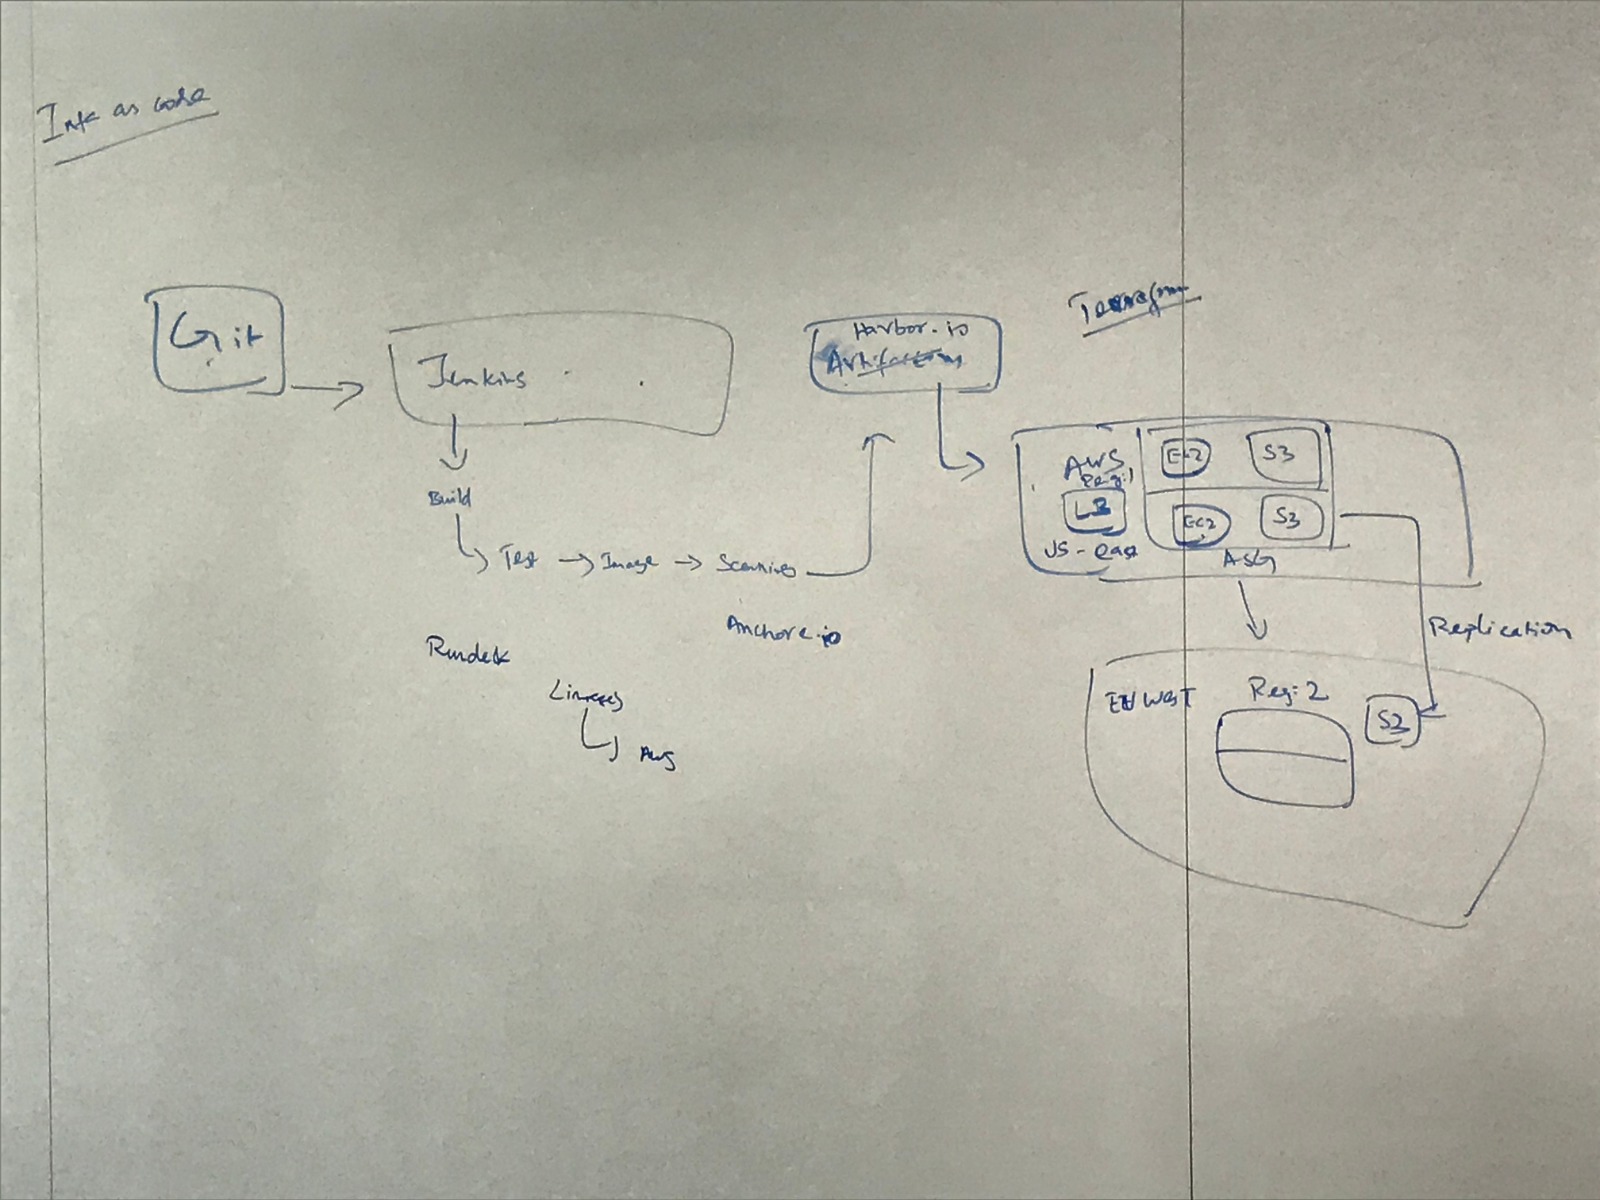 as code
Git
Jenkins
Build
Test
Image
Scanning
Anchore.io
Rundeck
AWS
Harbor.io
Terraform
AWS
Reg:1
LB
US-east
EC2
S3
EC2
S3
ASG
Replication
EU WEST
Reg:2
S3